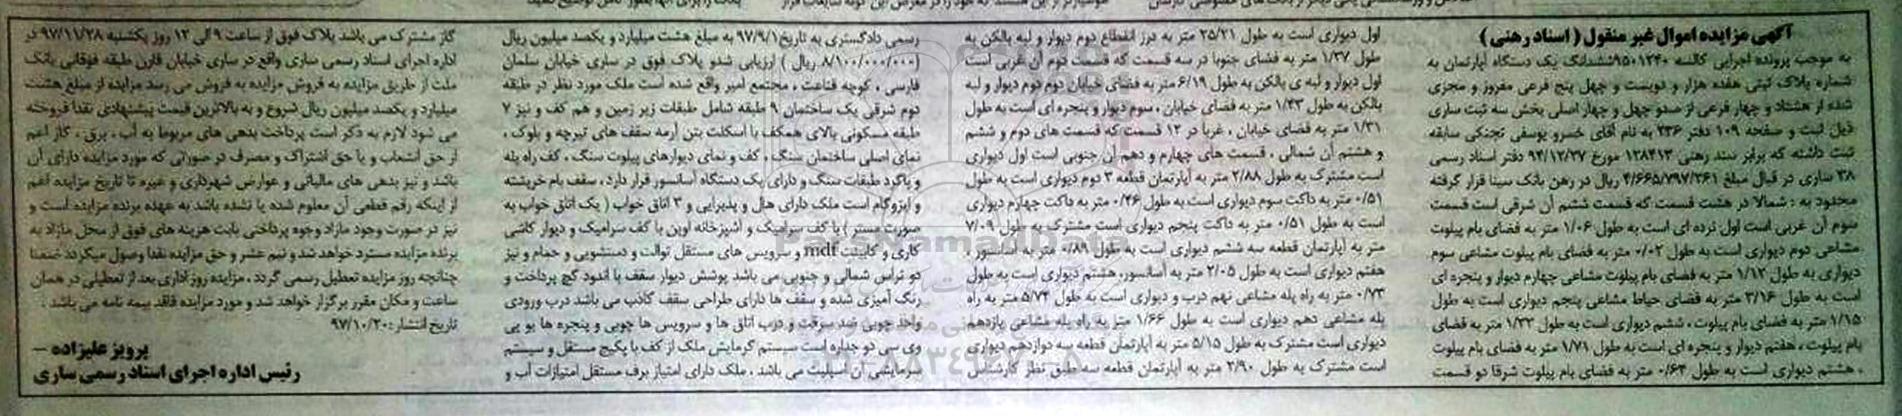 آگهی مزایده اموال غیر منقول ( اسناد رهنی )
به موجب پرونده اجرایی کلاسه ۹۵۰۱۲۴۰ ششدانگ یک دستگاه آپارتمان به
شماره پلاک ثبتی هفده هزار و دویست و چهل پنج فرعی مفروز و مجزی
شده از هشتاد و چهار فرعی از صدو چهل و چهار اصلی بخش سه ثبت ساری
ذیل ثبت و صفحه ۱۰۹ دفتر ۲۳۶ به نام آقای خسرو یوسفی تجنکی سابقه
ثبت داشته که برابر سند رهنی ۱۲۸۴۱۳ مورخ ۹۴/۱۲/۲۷ دفتر اسناد رسمی
۳۸ ساری در قبال مبلغ ۴/۶۶۵/۷۹۷/۳۶۱ ریال در رهن بانک سینا قرار گرفته
محدود به : شمالا در هشت قسمت که قسمت ششم آن شرقی است قسمت
سوم آن غربی است اول نرده ای است به طول ۱/۰۶ متر به فضای بام پیلوت
مشاعی دوم دیواری است به طول ۰/۰۲ متر به فضای بام پیلوت مشاعی سوم
دیواری به طول ۱/۱۲ متر به فضای بام پیلوت مشاعی چهارم دیوار و پنجره ای
است به طول ۳/۱۶ متر به فضای حیاط مشاعی پنجم دیواری است به طول
۱/۱۵ متر به فضای بام پیلوت ، ششم دیواری است به طول ۱/۳۲ متر به فضای
بام پیلوت ، هفتم دیوار و پنجره ای است به طول ۱/۷۱ متر به فضای بام پیلوت
، هشتم دیواری است به طول ۰/۶۳ متر به فضای بام پیلوت شرقا دو قسمت
اول دیواری است به طول ۲۵/۲۱ متر به درز انقطاع دوم دیوار و لبه بالکن به
طول ۱/۳۷ متر به فضای جنوبا در سه قسمت که قسمت دوم آن غربی است
اول دیوار و لبه ی بالکن به طول ۶/۱۹ متر به فضای خیابان دوم دوم دیوار و لبه
بالکن به طول ۱/۴۳ متر به فضای خیابان ، سوم دیوار و پنجره ای است به طول
۱/۳۱ متر به فضای خیابان ، غربا در ۱۲ قسمت که قسمت های دوم و ششم
و هشتم آن شمالی ، قسمت های چهارم و دهم آن جنوبی است اول دیواری
است مشترک به طول ۲/۸۸ متر به آپارتمان قطعه ۳ دوم دیواری است به طول
۰/۵۱ متر به داکت سوم دیواری است به طول ۰/۴۶ متر به داکت چهارم دیواری
است به طول ۰/۵۱ متر به داکت پنجم دیواری است مشترک به طول ۷/۰۹
متر به آپارتمان قطعه سه ششم دیواری است به طول ۰/۸۹ متر به آسانسور ،
هفتم دیواری است به طول ۲/۰۵ متر به آسانسور، هشتم دیواری است به طول
۰/۷۳ متر به راه پله مشاعی نهم درب و دیواری است به طول ۵/۷۴ متر به راه
پله مشاعی دهم دیواری است به طول ۱/۶۶ متر به راه پله مشاعی یازدهم
دیواری است مشترک به طول ۵/۱۵ متر به آپارتمان قطعه سه دوازدهم دیواری
است مشترک به طول ۲/۹۰ متر به آپارتمان قطعه سه طبق نظر کارشناس
رسمی دادگستری به تاریخ ۹۷/۹/۱ به مبلغ هشت میلیارد و یکصد میلیون ریال
(۸/۱۰۰/۰۰۰/۰۰۰ ریال ) ارزیابی شدو پلاک فوق در ساری خیابان سلمان
فارسی ، کوچه قناعت ، مجتمع امیر واقع شده است ملک مورد نظر در طبقه
دوم شرقی یک ساختمان ۹ طبقه شامل طبقات زیر زمین و هم کف و نیز ۷
طبقه مسکونی بالای همکف با اسکلت بتن آرمه سقف های تیرچه و بلوک ،
نمای اصلی ساختمان سنگ ، کف و نمای دیوارهای پیلوت سنگ ، کف راه پله
و پاگرد طبقات سنگ و دارای یک دستگاه آسانسور قرار دارد ، سقف بام خرپشته
و ایزوگام است ملک دارای هال و پذیرایی و ۳ اتاق خواب ( یک اتاق خواب به
صورت مستر ) با کف سرامیک و آشپزخانه اوپن با کف سرامیک و دیوار کاشی
کاری و کابینت mdf و سرویس های مستقل توالت و دستشویی و حمام و نیز
دو تراس شمالی و جنوبی می باشد پوشش دیوار سقف با اندود گچ پرداخت و
رنگ آمیزی شده و سقف ها دارای طراحی سقف کاذب می باشد درب ورودی
واحد چوبی ضد سرقت و درب اتاق ها و سرویس ها چوبی و پنجره ها یو پی
وی سی دو جداره است سیستم گرمایش ملک از کف با پکیج مستقل و سیستم
سرمایشی آن اسپلیت می باشد ، ملک دارای امتیاز برف مستقل امتیازات آب و
گاز مشترک می باشد پلاک فوق از ساعت ۹ الی ۱۲ روز یکشنبه ۹۷/۱۱/۲۸ در
اداره اجرای اسناد رسمی ساری واقع در ساری خیابان قارن طبقه فوقانی بانک
ملت از طریق مزایده به فروش مزایده به فروش می رسد مزایده از مبلغ هشت
میلیارد و یکصد میلیون ریال شروع و به بالاترین قیمت پیشنهادی نقدا فروخته
می شود لازم به ذکر است پرداخت بدهی های مربوط به آب ، برق ، گاز اعم
از حق انشعاب و یا حق اشتراک و مصرف در صورتی که مورد مزایده دارای آن
باشد و نیز بدهی های مالیاتی و عوارض شهرداری و غیره تا تاریخ مزایده اعم
از اینکه رقم قطعی آن معلوم شده یا نشده باشد به عهده برنده مزایده است و
نیز در صورت وجود مازاد وجوه پرداختی بابت هزینه های فوق از محل مازاد به
برنده مزایده مسترد خواهد شد و نیم عشر و حق مزایده نقدا وصول میگردد ضمنا
چنانچه روز مزایده تعطیل رسمی گردد ، مزایده روز اداری بعد از تعطیلی در همان
ساعت و مکان مقرر برگزار خواهد شد و مورد مزایده فاقد بیمه نامه می باشد .
تاریخ انتشار : ۹۷/۱۰/۳۰
پرویز علیزاده –
رئیس اداره اجرای اسناد رسمی ساری